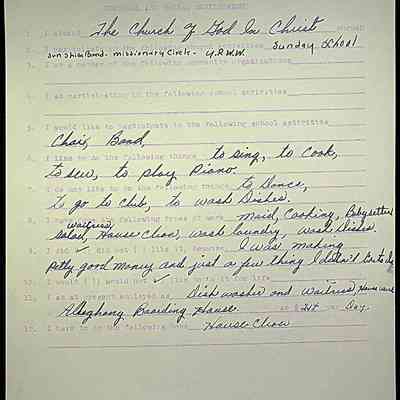 PERSONAL AND SOCIAL DEVELOPMENT
1. I attend The Church of God In Christ church
2. I participate in the following church activities Sunday School
Sunshine Band. Missionary Circle - Y.P.W.W.
3. I am a member of the following community organizations
4. I am participating in the following school activities
5. I would like to participate in the following school activities
Choir, Band,
6. I like to do the following things to sing, to cook,
to sew, to play Piano.
7. I do not like to do the following things to Dance,
to go to club, to wash Dishes.
8. I have done the following types of work maid, Cooking, Babysetter
waitress, House Choir, wash laundry, wash Dishes.
9. I did ✓ did not ( ) like it, because I was making
Petty good money and just a few thing I didn't Care to do
10. I would ( ) would not ✓ like to do it for life
11. I am at present employed as Dish washer and waitress, House work
Alleghany Boarding House at $ per Day.
12. I have to do the following home House Chore